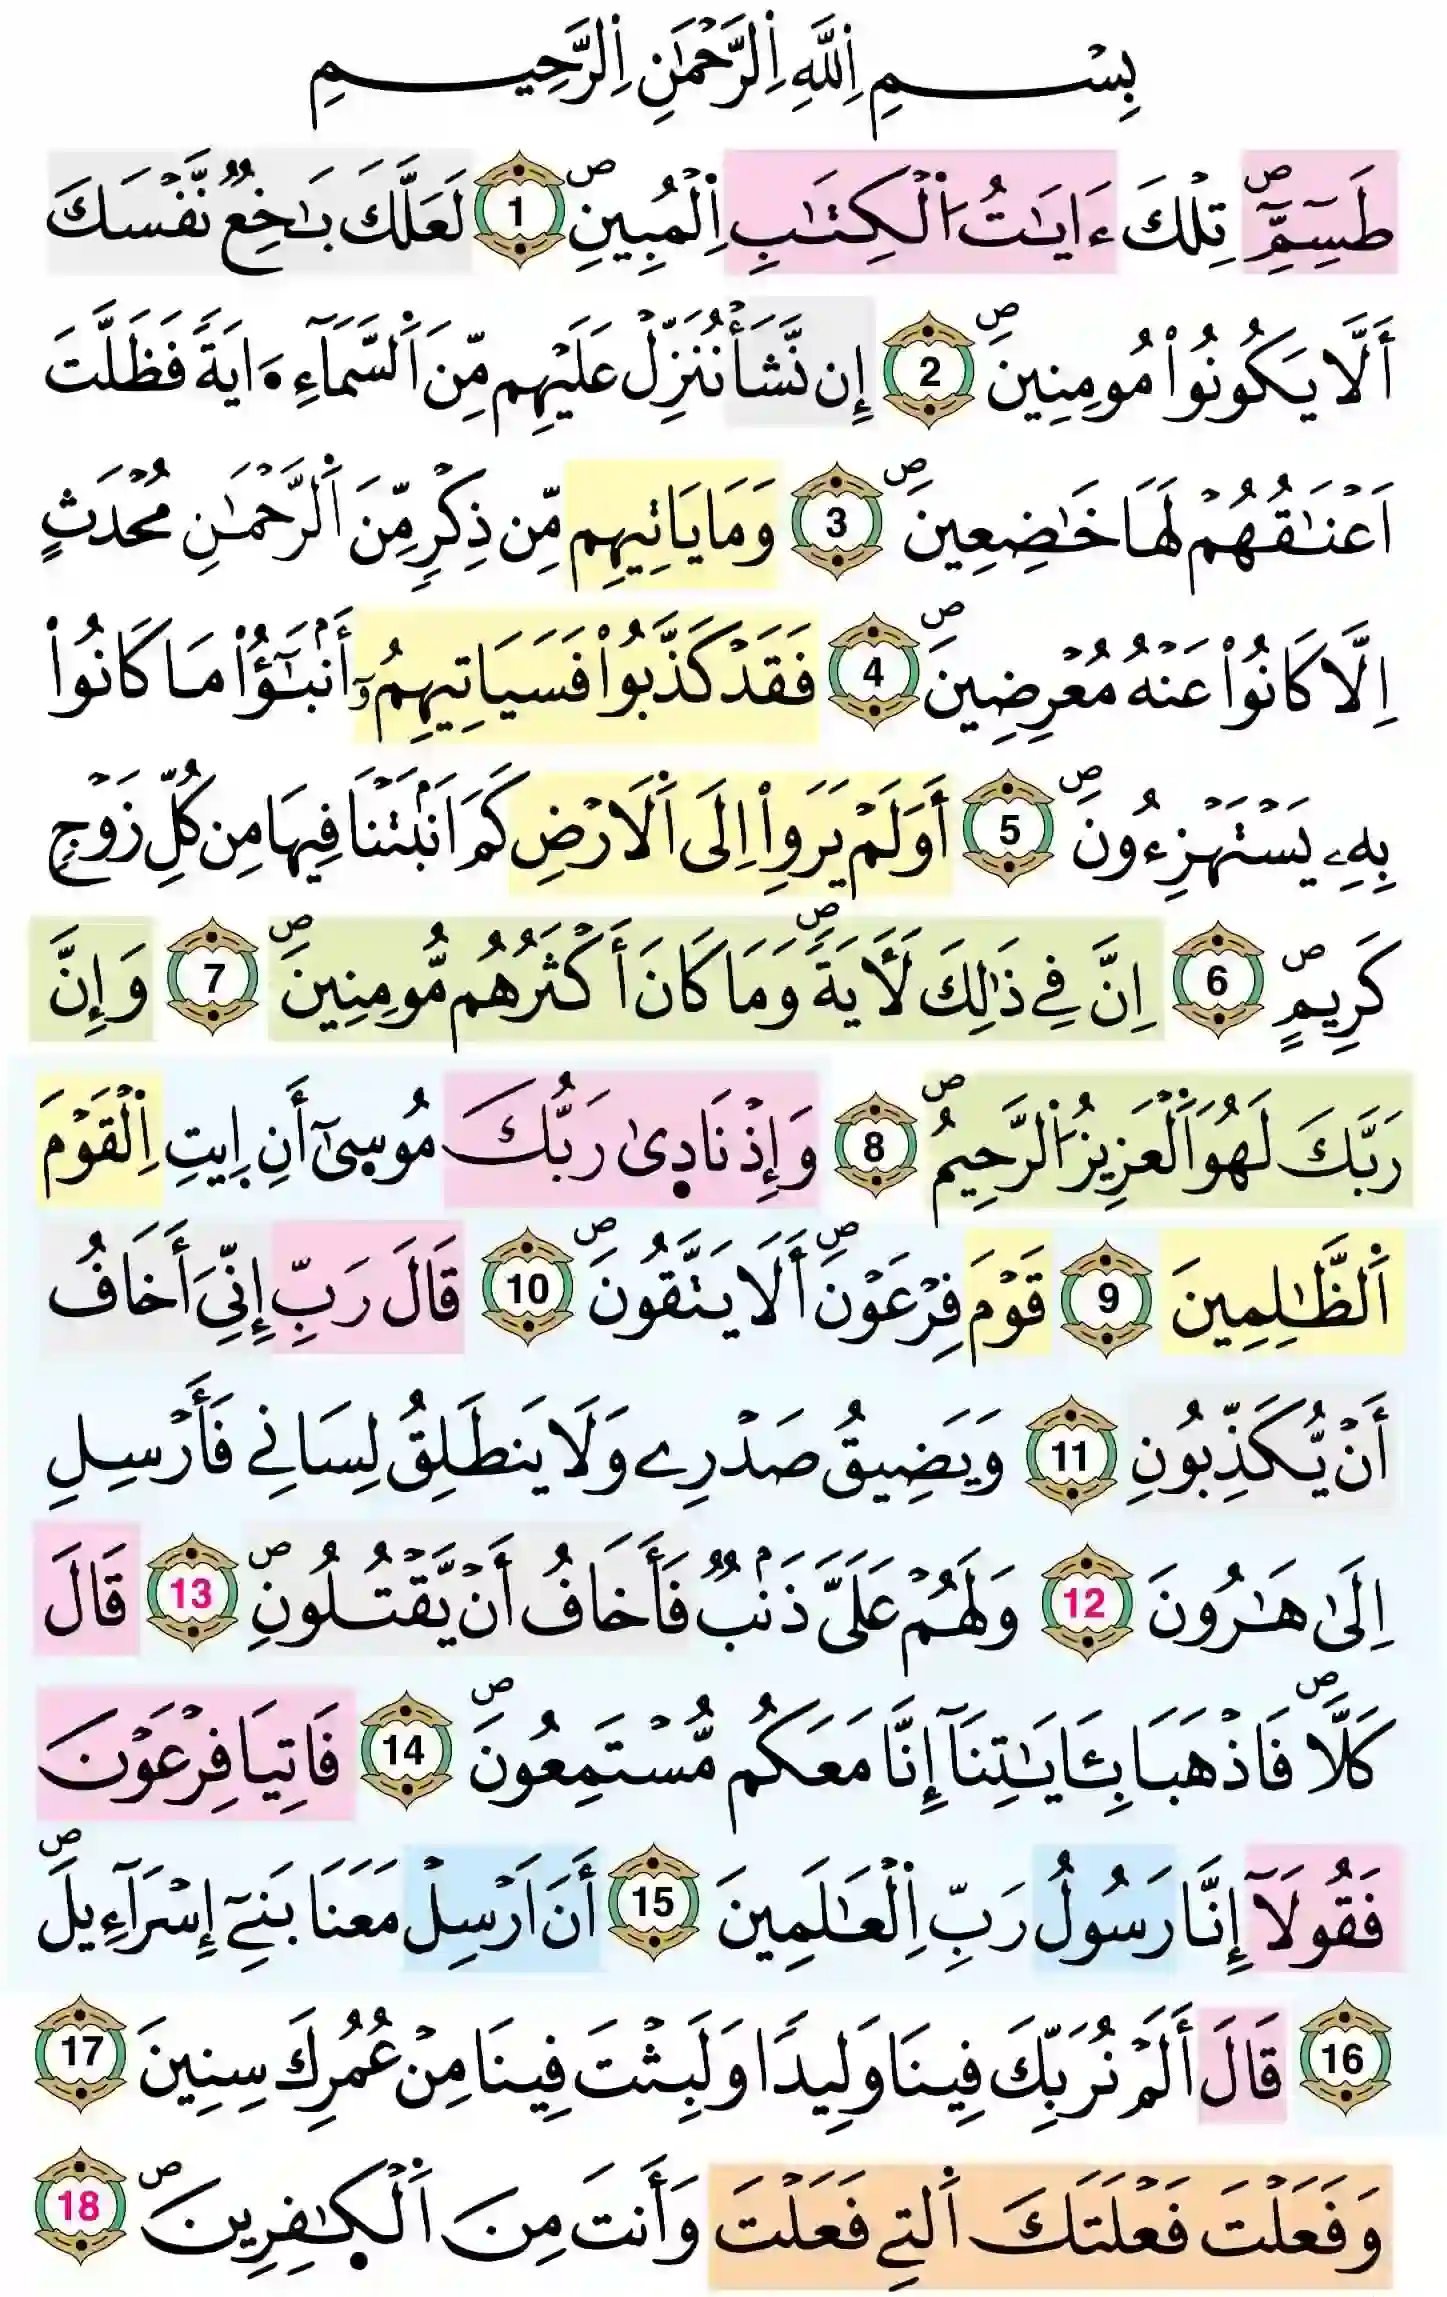 بِسْمِ اِللَّهِ اِلرَّحْمَٰنِ اِلرَّحِيمِ
طَسِٓمِّٓۖ تِلْكَ ءَايَٰتُ اُ۬لْكِتَٰبِ اِلْمُبِينِۖ 1 لَعَلَّكَ بَٰخِعٞ نَّفْسَكَ
أَلَّا يَكُونُواْ مُومِنِينَۖ 2 إِن نَّشَأْ نُنَزِّلْ عَلَيْهِم مِّنَ اَ۬لسَّمَآءِ اَ۬يَةٗ فَظَلَّتَ
اَعْنَٰقُهُمْ لَهَا خَٰضِعِينَۖ 3 وَمَا يَاتِيهِم مِّن ذِكْرٖ مِّنَ اَ۬لرَّحْمَٰنِ مُحْدَثٍ
اِلَّا كَانُواْ عَنْهُ مُعْرِضِينَۖ 4 فَقَدْ كَذَّبُواْ فَسَيَاتِيهِمُۥٓ أَنۢبَٰٓؤُاْ مَا كَانُواْ
بِهِۦ يَسْتَهْزِءُونَۖ 5 أَوَلَمْ يَرَوِاْ اِلَى اَ۬لَارْضِ كَمَ اَنۢبَتْنَا فِيهَا مِن كُلِّ زَوْجٖ
كَرِيمٍۖ 6 اِنَّ فِے ذَٰلِكَ لَأٓيَةٗۖ وَمَا كَانَ أَكْثَرُهُم مُّومِنِينَۖ 7 وَإِنَّ
رَبَّكَ لَهُوَ اَ۬لْعَزِيزُ اُ۬لرَّحِيمُۖ 8 وَإِذْ نَادِىٰ رَبُّكَ مُوسِىٰٓ أَنِ اِيتِ اِلْقَوْمَ
اَ۬لظَّٰلِمِينَ 9 قَوْمَ فِرْعَوْنَۖ أَلَا يَتَّقُونَۖ 10 قَالَ رَبِّ إِنِّيَ أَخَافُ
أَنْ يُّكَذِّبُونِ 11 وَيَضِيقُ صَدْرِے وَلَا يَنطَلِقُ لِسَانِے فَأَرْسِلِ
اِلَىٰ هَٰرُونَ 12 وَلَهُمْ عَلَيَّ ذَنۢبٞ فَأَخَافُ أَنْ يَّقْتُلُونِۖ 13 قَالَ
كَلَّاۖ فَاذْهَبَا بِـَٔايَٰتِنَآ إِنَّا مَعَكُم مُّسْتَمِعُونَۖ 14 فَاتِيَا فِرْعَوْنَ
فَقُولَآ إِنَّا رَسُولُ رَبِّ اِلْعَٰلَمِينَ 15 أَنَ اَرْسِلْ مَعَنَا بَنِےٓ إِسْرَآءِيلَۖ
16 قَالَ أَلَمْ نُرَبِّكَ فِينَا وَلِيدٗا وَلَبِثْتَ فِينَا مِنْ عُمُرِكَ سِنِينَ 17
وَفَعَلْتَ فَعْلَتَكَ اَ۬لتِے فَعَلْتَ وَأَنتَ مِنَ اَ۬لْكَٰفِرِينَۖ 18